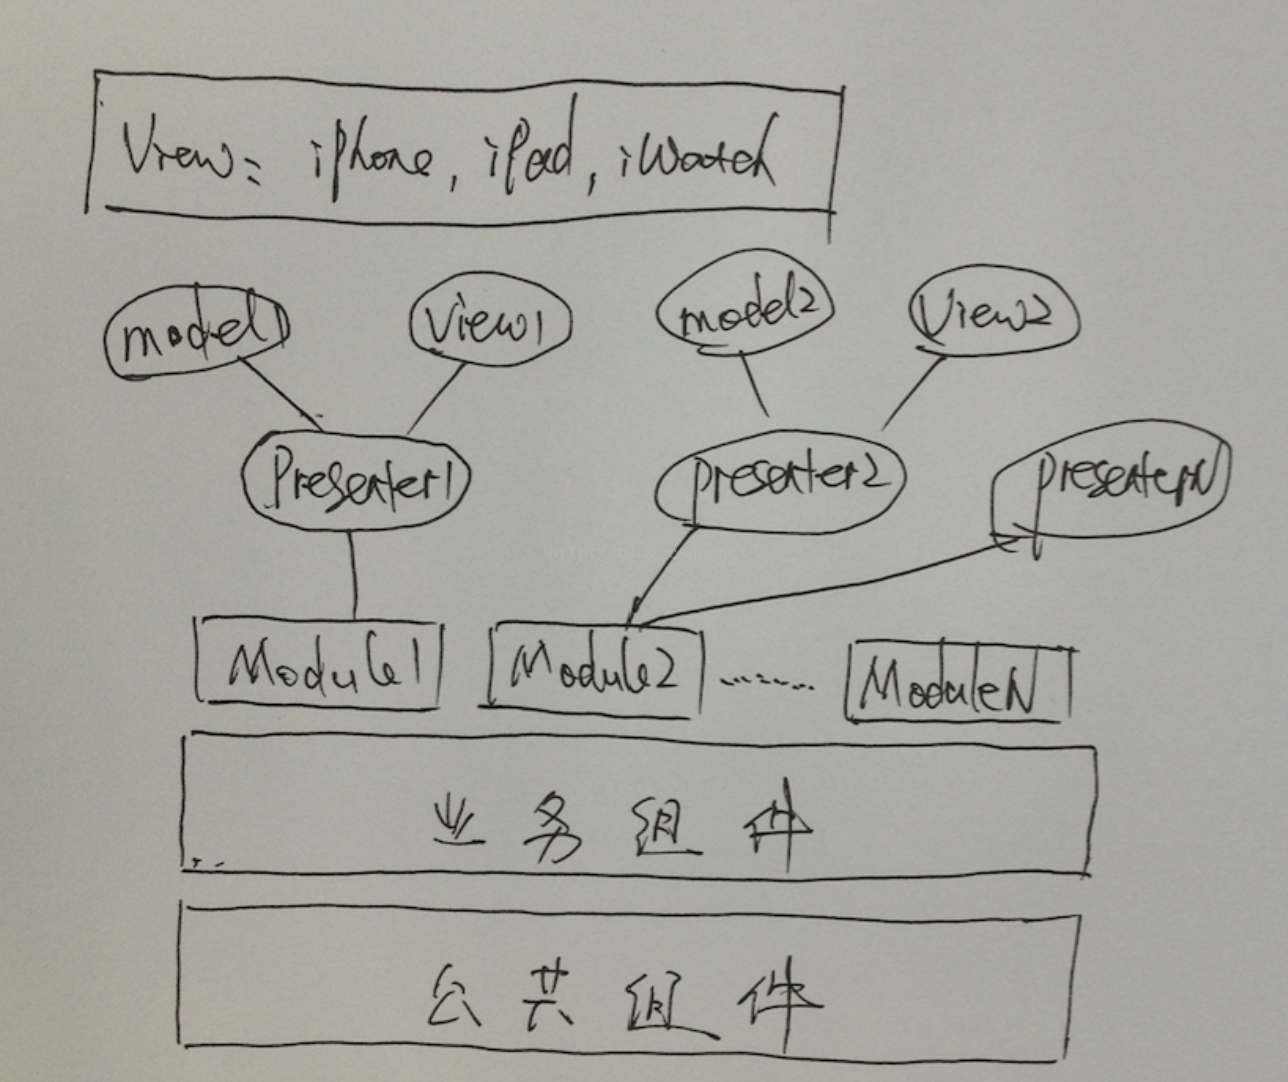 View: iPhone, iPad, iWatch
model1 View1 model2 View2
Presenter1 presenter2 presenterN
Module1 Module2 ------- ModuleN
业务组件
公共组件